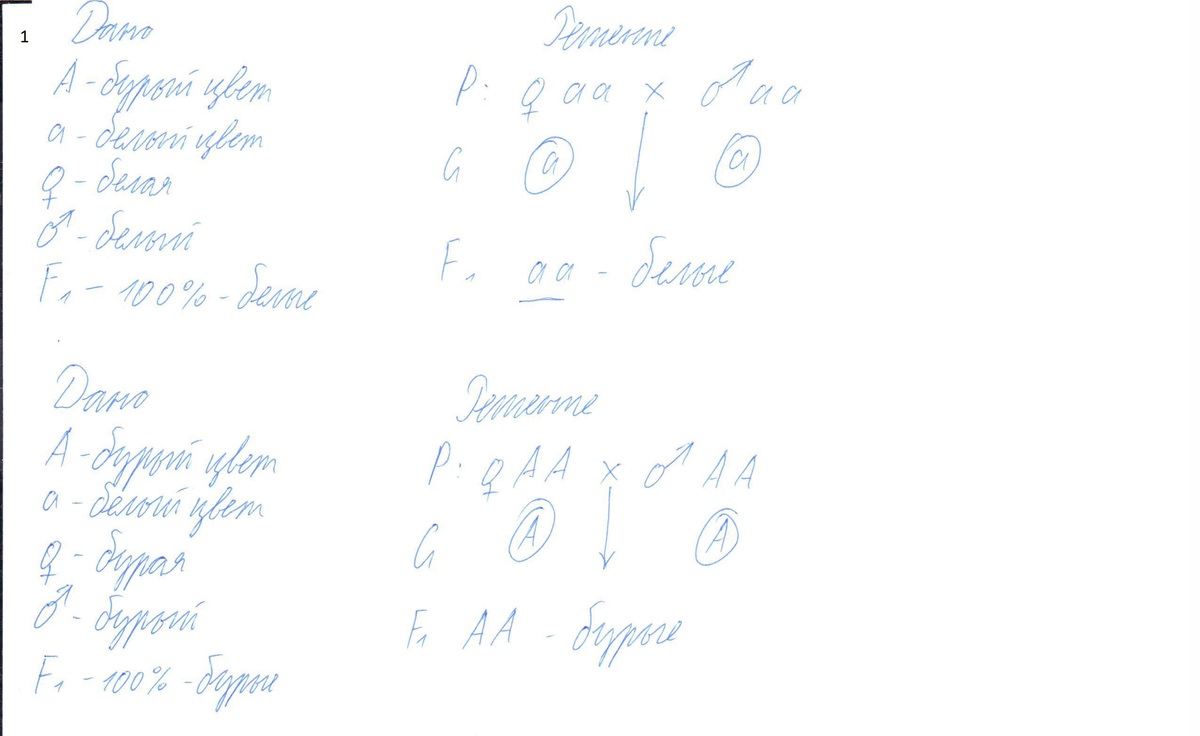 1
Дано
А - бурый цвет
а - белый цвет
♀ - белая
♂ - белый
F₁ - 100% - белые
Решение
P: ♀ аа × ♂ аа
G а а
F₁ аа - белые
Дано
А - бурый цвет
а - белый цвет
♀ - бурая
♂ - бурый
F₁ - 100% - бурые
Решение
P: ♀ АА × ♂ АА
G А А
F₁ АА - бурые